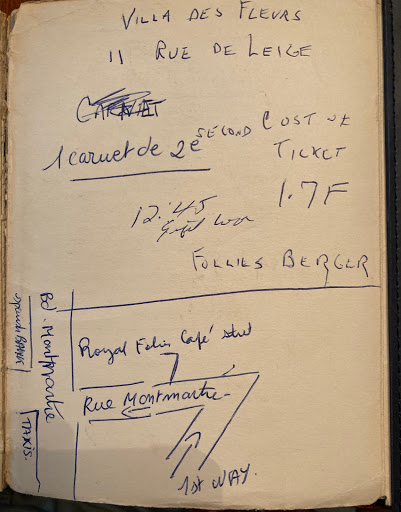 VILLA DES FLEURS
11 RUE DE LEIGE
CARNET
1 carnet de 2e SECOND
COST OF
TICKET
1.7F
12.45
FOLLIES BERGER
Bd. Montmartre
TAXIS.
Royal Café
Rue Montmartre
1st WAY.